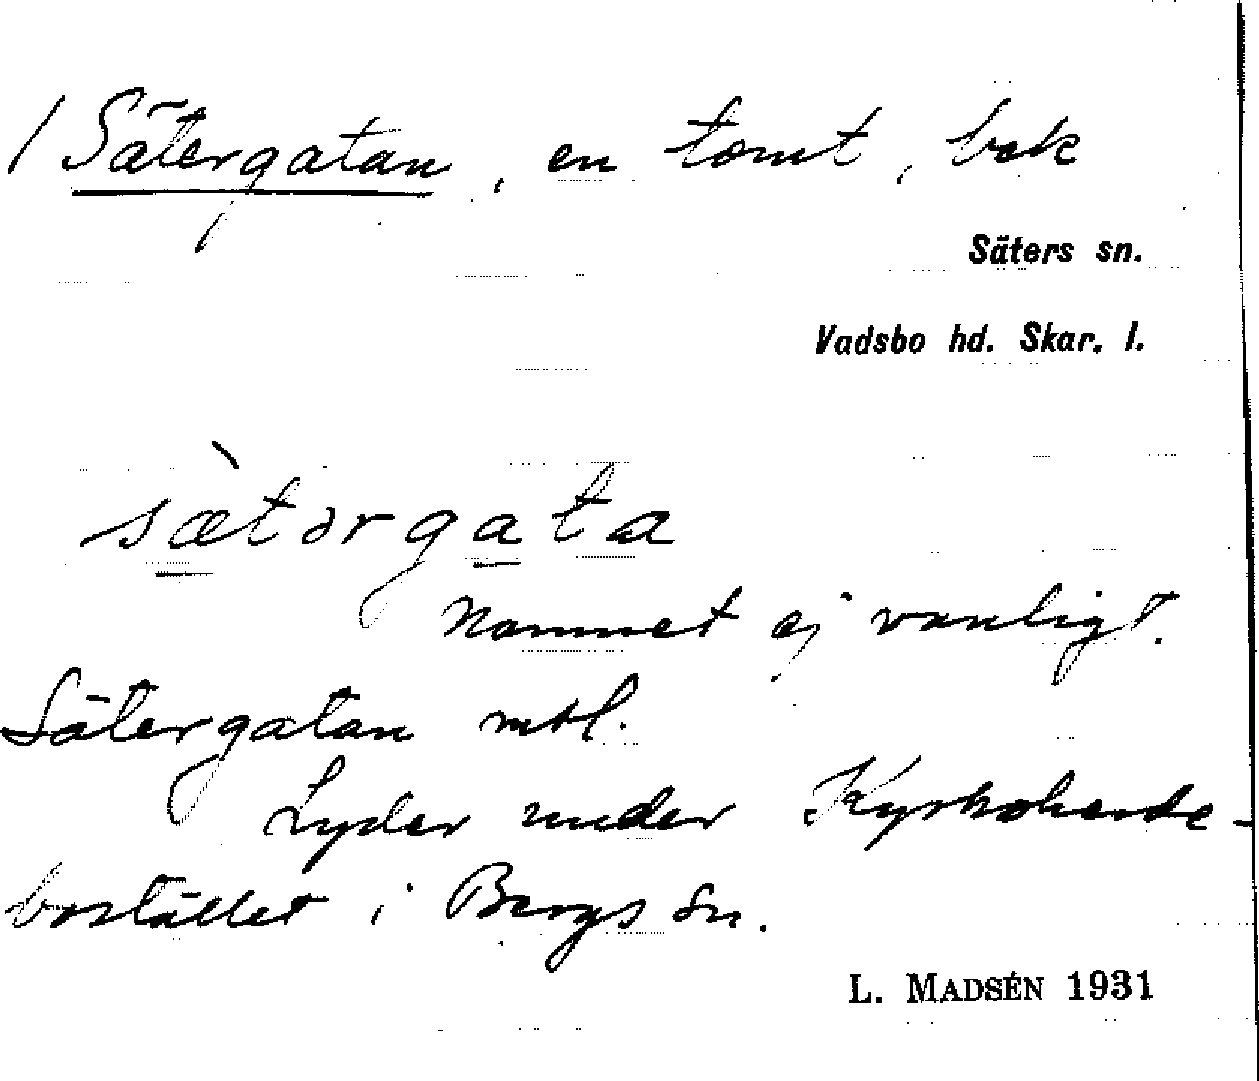 / Sätergatan, en tomt, bek
Säters sn.
Vadsbo hd. Skar. l.
sæ̀tərgata
Namnet ej vanligt.
Sätergatan mtl.
Lyder under Kyrkoherde-
bostället i Bergs sn.
L. MADSÉN 1931